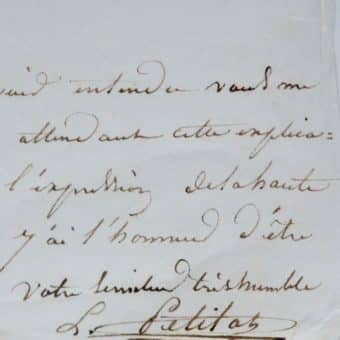 entendu vous me
attendant cette explica=
l'expression de la haute
j'ai l'honneur d'être
votre serviteur très humble
L. Petitot